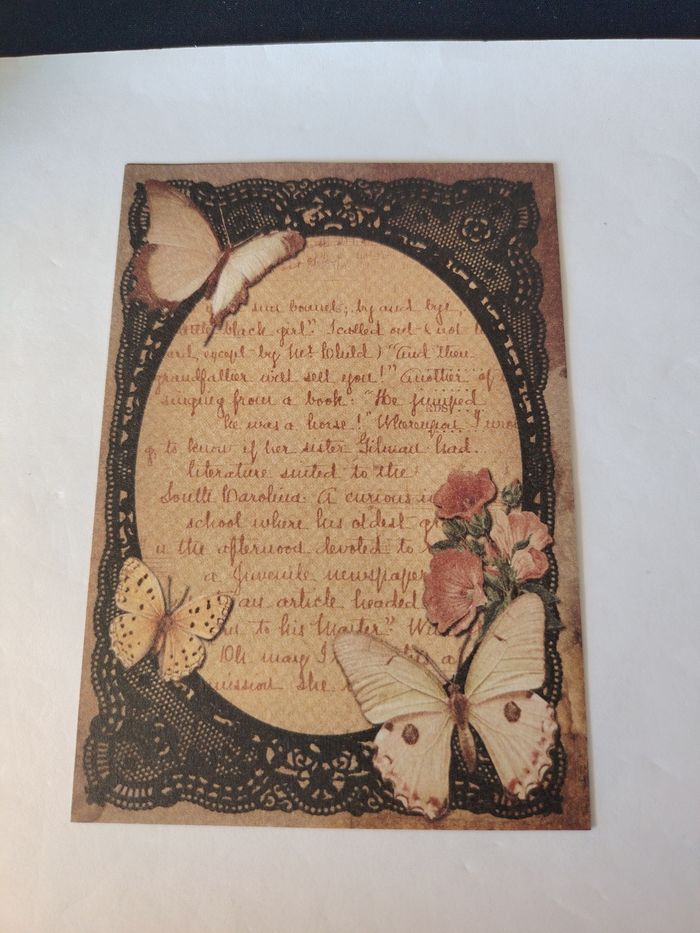 sun bonnet; by and bye,
little black girl". I called out & not
ard, except by Mrs Child) "And then
grandfather will sell you!" Another of
singing from a book: "He jumped
he was a horse!" Whereupon I
to know if her sister Gilman had.
literature suited to the
South Carolina: A curious
school where his oldest
the afternoon devoted to
a Juvenile newspaper
an article headed
to his Master".
Oh may I
mission she